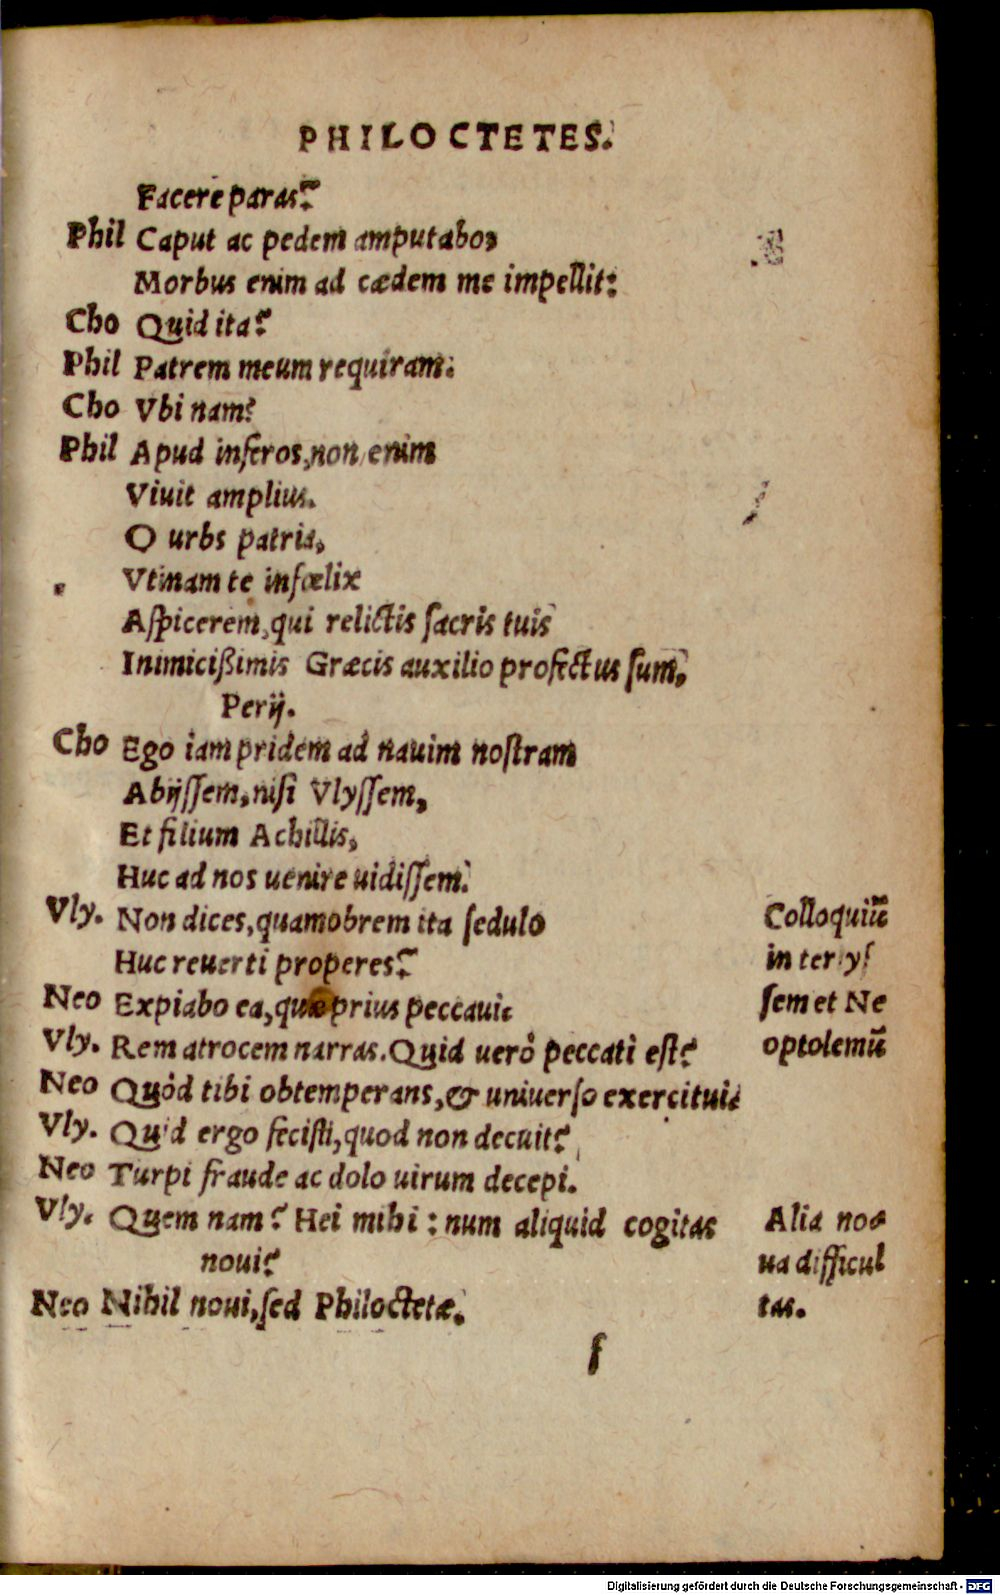 PHILOCTETES.
Facere paras?
Phil Caput ac pedem amputabo,
Morbus enim ad cædem me impellit:
Cho Quid ita?
Phil Patrem meum requiram.
Cho Vbi nam?
Phil Apud inferos, non enim
Viuit amplius.
O urbs patria,
Vtinam te infœlix
Aſpicerem, qui relictis ſacris tuis
Inimicißimis Græcis auxilio profectus ſum,
Perij.
Cho Ego iampridem ad nauim noſtram
Abijſſem, niſi Vlyſſem,
Et filium Achillis,
Huc ad nos uenire uidiſſem.
Vly. Non dices, quamobrem ita ſedulo
Huc reuerti properes?
Neo Expiabo ea, quæ prius peccaui:
Vly. Rem atrocem narras. Quid uerò peccati eſt?
Neo Quòd tibi obtemperans, & uniuerſo exercitui:
Vly. Quid ergo feciſti, quod non decuit?
Neo Turpi fraude ac dolo uirum decepi.
Vly. Quem nam? Hei mihi: num aliquid cogitas
noui?
Neo Nihil noui, ſed Philoctetæ.
f
Colloquiũ
inter Vlyſ
ſem et Ne
optolemũ
Alia no⸗
ua difficul
tas.
Digitalisierung gefördert durch die Deutsche Forschungsgemeinschaft - DFG